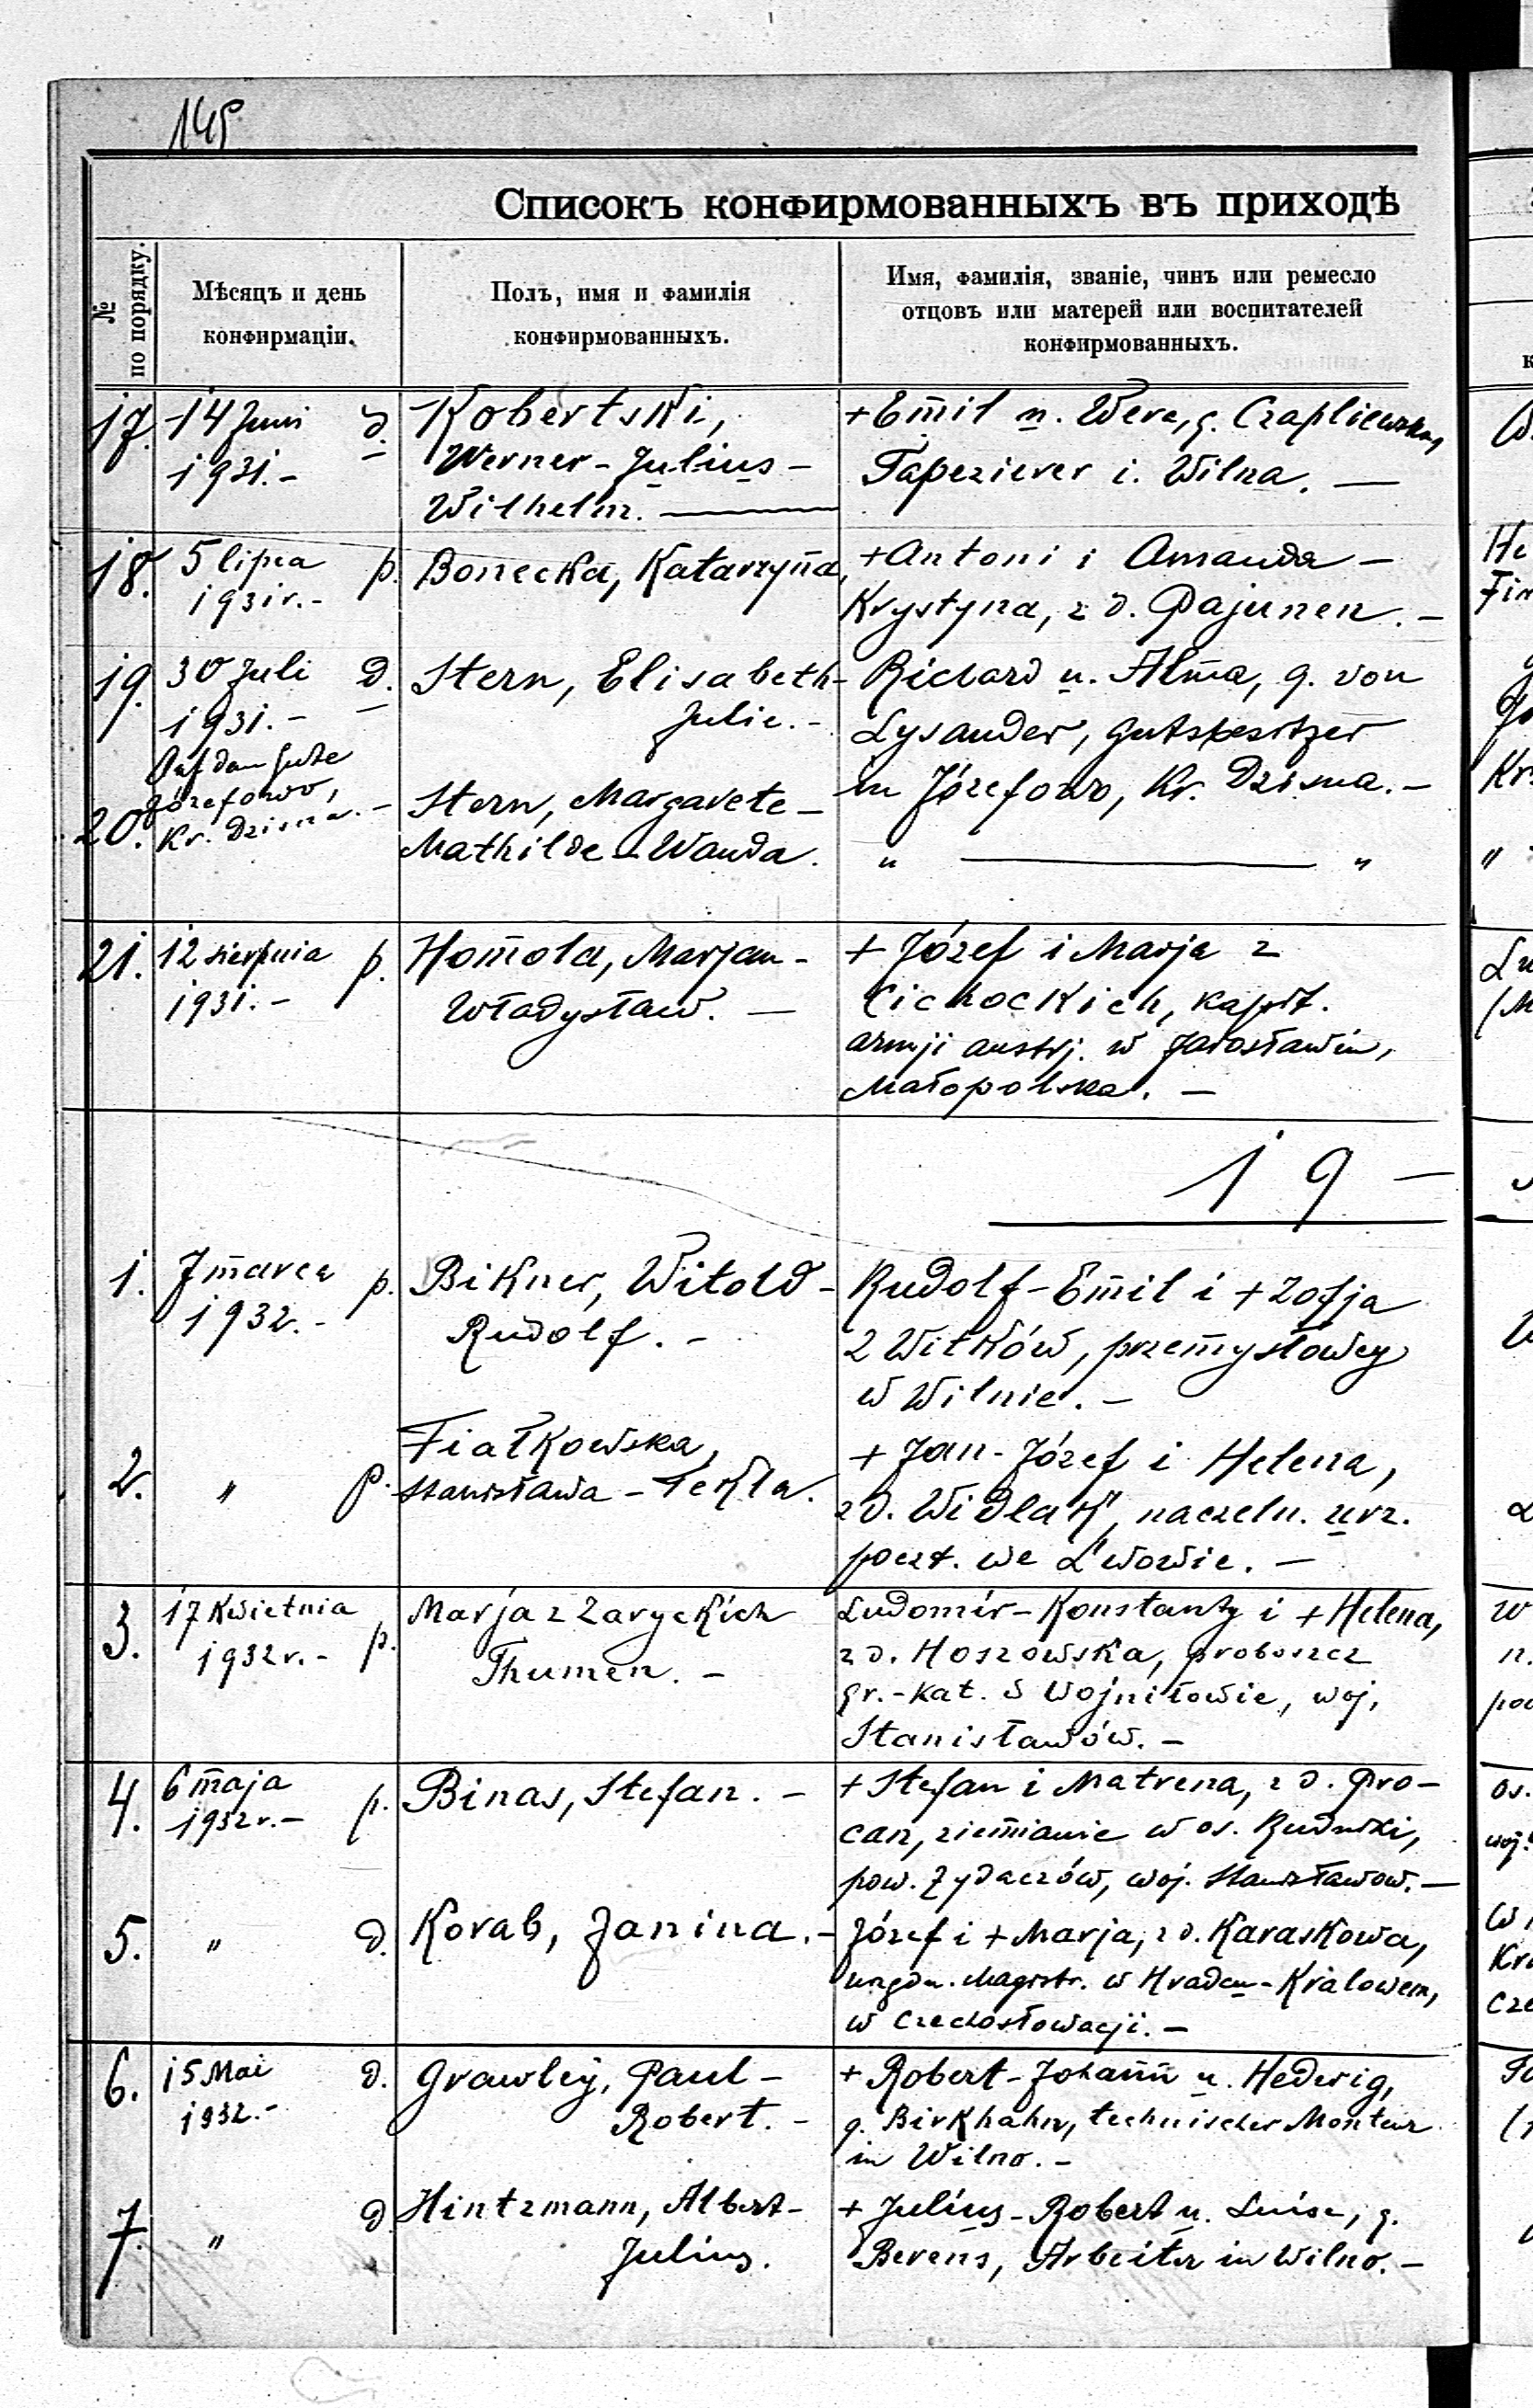 145
Списокъ конфирмованныхъ въ приходѣ
№ по порядку.
Мѣсяцъ и день
конфирмаціи.
Полъ, имя и фамилія
конфирмованныхъ.
Имя, фамилія, званіе, чинъ или ремесло
отцовъ или матерей или воспитателей
конфирмованныхъ.
17. 14 Juni d. Kobertski, + Emil u. Wera, g. Czapliewska,
1931. - Werner-Julius- Tapezierer i. Wilna. —
Wilhelm. —
18. 5 lipca p. Bonecka, Katarzyna, + Antoni i Amanda -
1931 r. - Krystyna, z d. Pajunen. -
19. 30 Juli d. Stern, Elisabeth- Richard u. Alma, g. von
1931. - Julie. - Lysander, Gutsbesitzer
Auf dem Gute
Józefowo, in Józefowo, Kr. Dzisna. -
20. Kr. Dzisna. - Stern, Margarete-
Mathilde-Wanda. " — "
21. 12 sierpnia p. Homola, Marjan- + Józef i Marja z
1931. - Władysław. — Cichockich, kapit.
armji austrj. w Jarosławiu,
Małopolska. -
19 -
1. 7 marca p. Bikner, Witold- Rudolf-Emil i + Zofja
1932. - Rudolf. - z Witków, przemysłowcy
w Wilnie. -
2. " p. Fiałkowska, + Jan-Józef i Helena,
Stanisława-Tekla. z d. Widlak, naczeln. urz.
poczt. we Lwowie. —
3. 17 kwietnia p. Marja z Zaryckich Ludomir-Konstanty i + Helena,
1932 r. - Thumen. - z d. Hoszowska, proboszcz
gr.-kat. w Wojniłowie, woj.
Stanisławów. -
4. 6 maja p. Binas, Stefan. - + Stefan i Matrena, z d. Pro-
1932 r. - can, ziemianie w os. Rudniki,
pow. Żydaczów, woj. Stanisławow. —
5. " d. Korab, Janina. - Józef i + Marja, z d. Karaskowa,
Magistr. w Hradcu-Kralowem,
w Czechosłowacji. -
6. 15 Mai d. Grawley, Paul- + Robert-Johann u. Hedwig,
1932. - Robert. - g. Birkhahn, technischer Monteur
in Wilno. -
7. " d. Hintzmann, Albert- + Julius-Robert u. Luise, g.
Julius. Berens, Arbeiter in Wilno. -